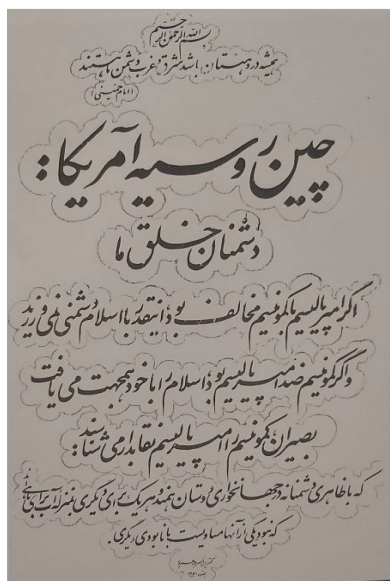 بسم الله الرحمن الرحیم
همیشه در ذهنتان باشد شرق و غرب دشمن ما هستند
(امام خمینی)
چین روسیه آمریکا:
دشمنان خلق ما
اگر امپریالیسم با کمونیسم مخالف بود اینقدر با اسلام دشمنی نمی‌ورزید
و اگر کمونیسم ضد امپریالیسم بود اسلام را با خود همجهت می یافت
بصیران کمونیسم را امپریالیسم نقابدار می شناسند:
که با ظاهری دشمنانه در جهانخواری دوستان همند و هریک برای دیگری بمنزله آب برای ماهی
که نبود یکی از آنها مساویست با نابودی دیگری.